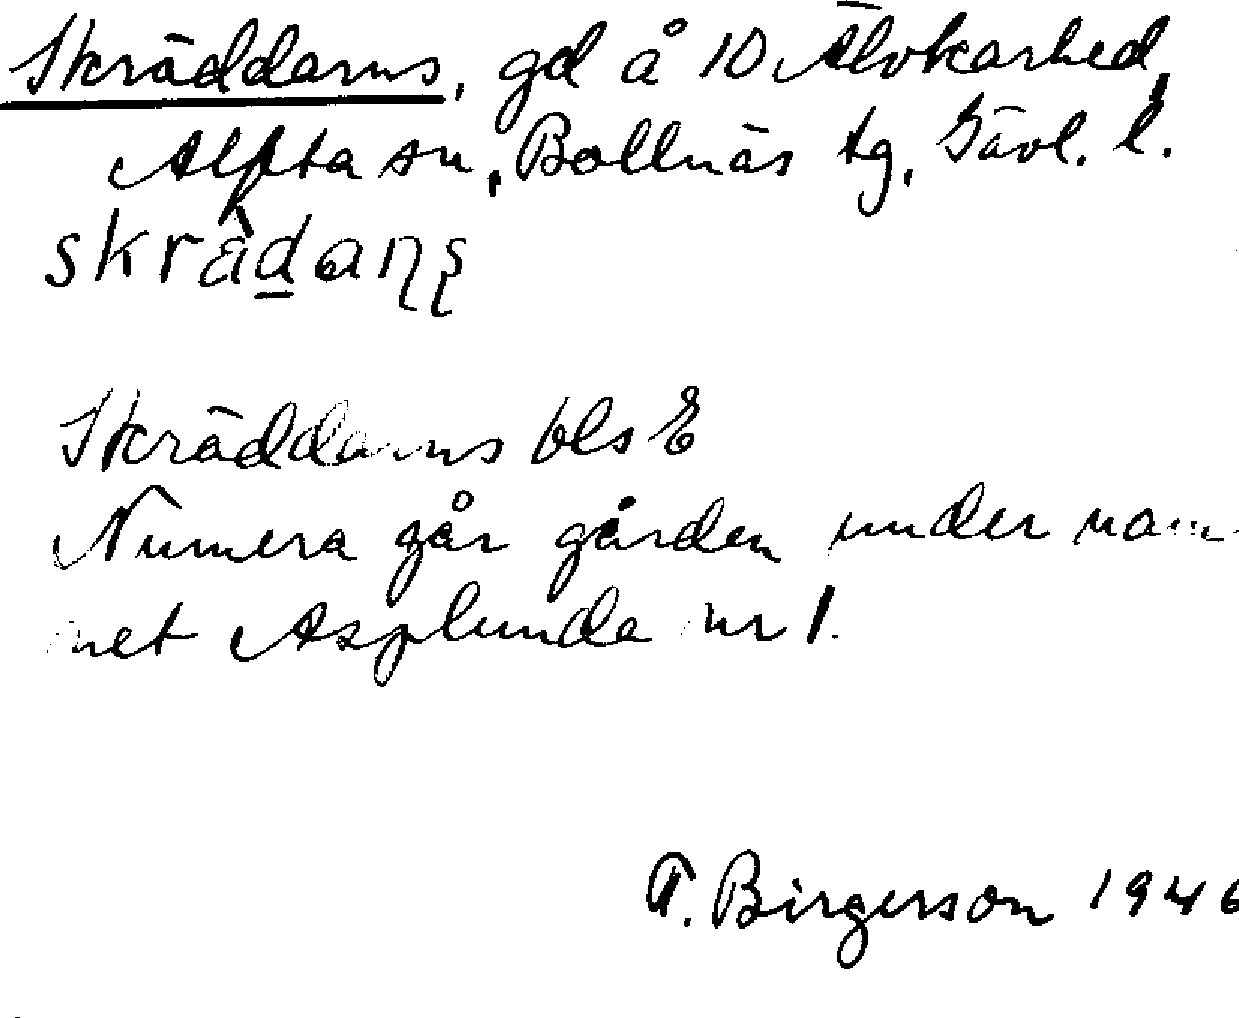 Skräddarns, gd å 10 Älvkarhed,
Alfta sn, Bollnäs tg, Gävl. l.
skrä̀d̲aɳʂ
Skräddarns bls E
Numera går gården under nam-
net Asplunda nr 1.
T. Birgerson 1946